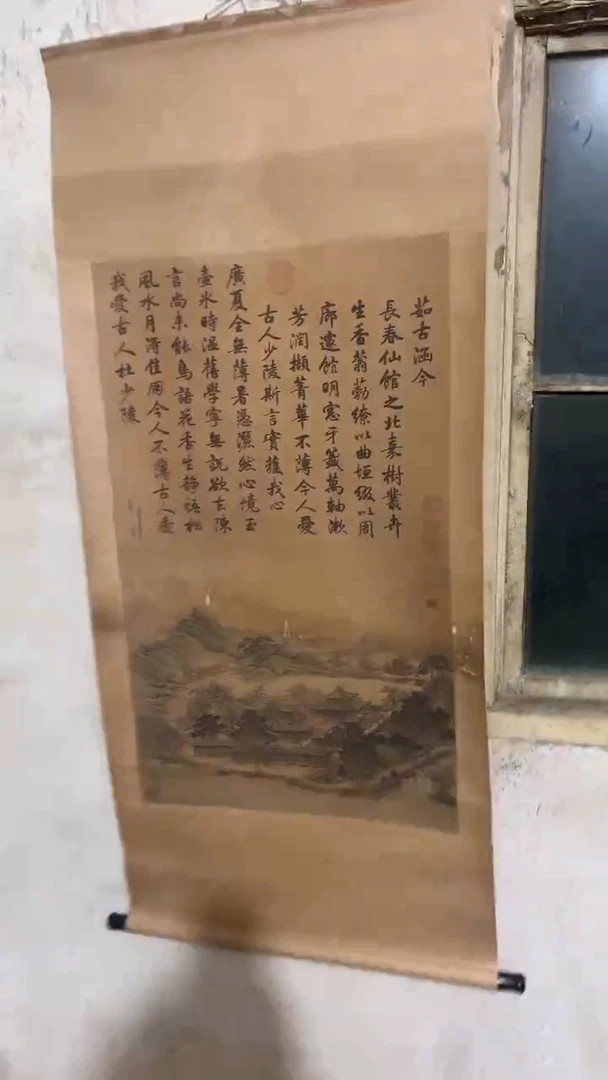 茹古涵今
長春仙館之北嘉樹叢卉
生香蓊葧繚以曲垣綴以周
廊邃館明窓牙籤萬軸漱
芳潤擷菁華不薄今人愛
古人少陵斯言實獲我心
廣夏全無薄暑憑瀟然心境玉
壺氷時溫舊學寧無說欲去陳
言尚未能鳥語花香生靜悟松
風水月得佳朋今人不薄古人愛
我愛古人杜少陵